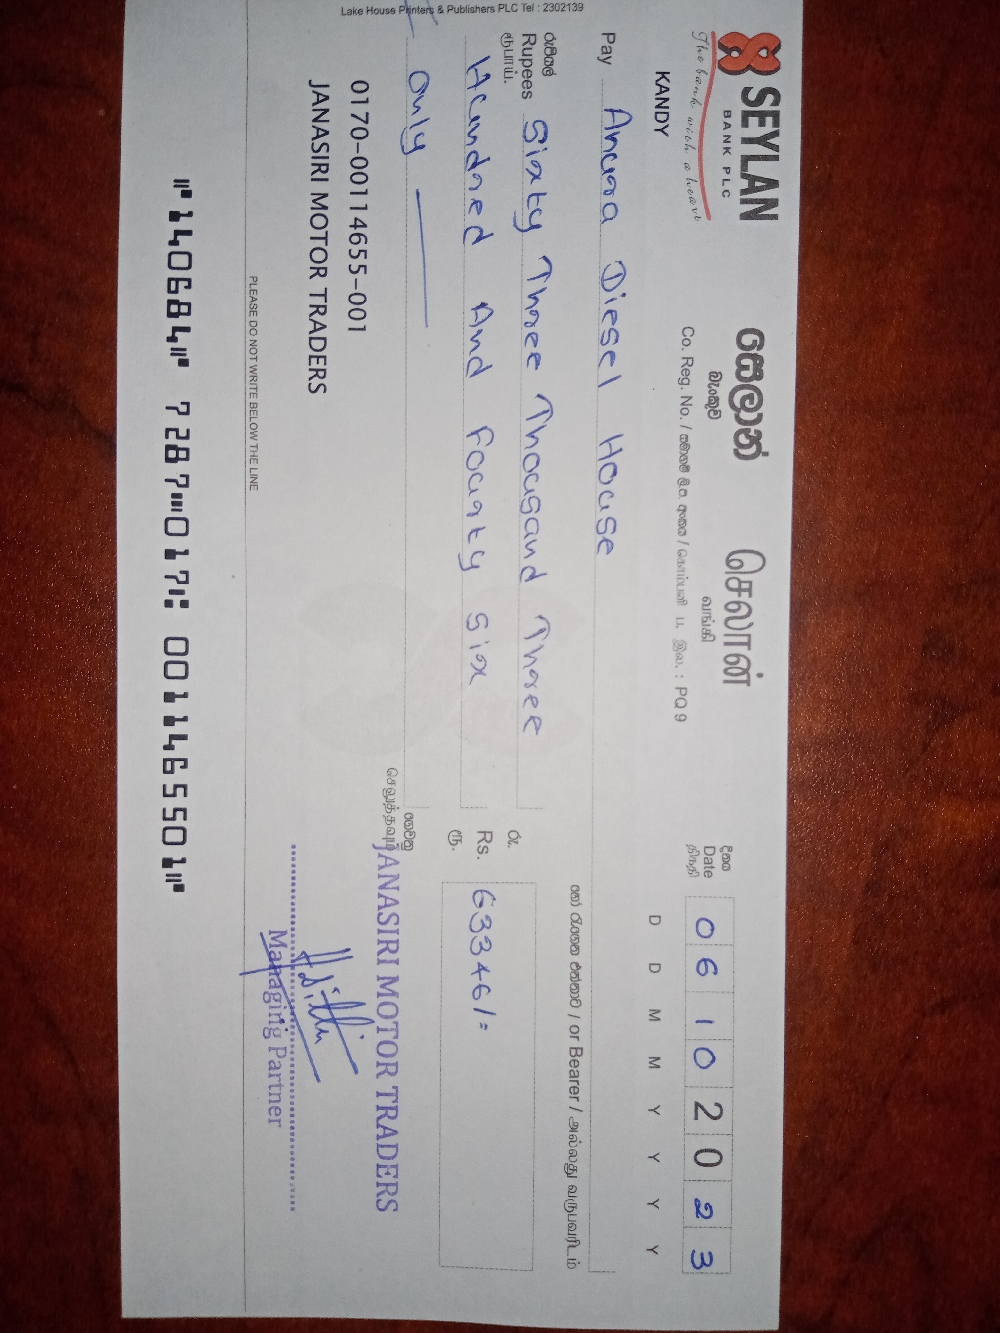 Lake House Printers & Publishers PLC Tel : 2302139
SEYLAN
BANK PLC
The bank with a heart
සෙලාන්
බැංකුව
செலான்
வங்கி
Co. Reg. No. / සමාගම් ලි.ප. අංකය / கொம்பனி ப. இல. : PQ 9
KANDY
දිනය
Date
திகதி
0 6 1 0 2 0 2 3
D D M M Y Y Y Y
Pay Anura Diesel House
හෝ රැගෙන එන්නාට / or Bearer / அல்லது வருபவரிடம்
රුපියල්
Rupees
ரூபாய்.
Sixty Three Thousand Three
Hundred And Fourty Six
Only
රු.
Rs.
ரூ.
63346/=
ගෙවනු
செலுத்தவும்
0170-00114655-001
JANASIRI MOTOR TRADERS
JANASIRI MOTOR TRADERS
Managing Partner
PLEASE DO NOT WRITE BELOW THE LINE
⑈140684⑈ 7287⑉017⑆ 0011465501⑈